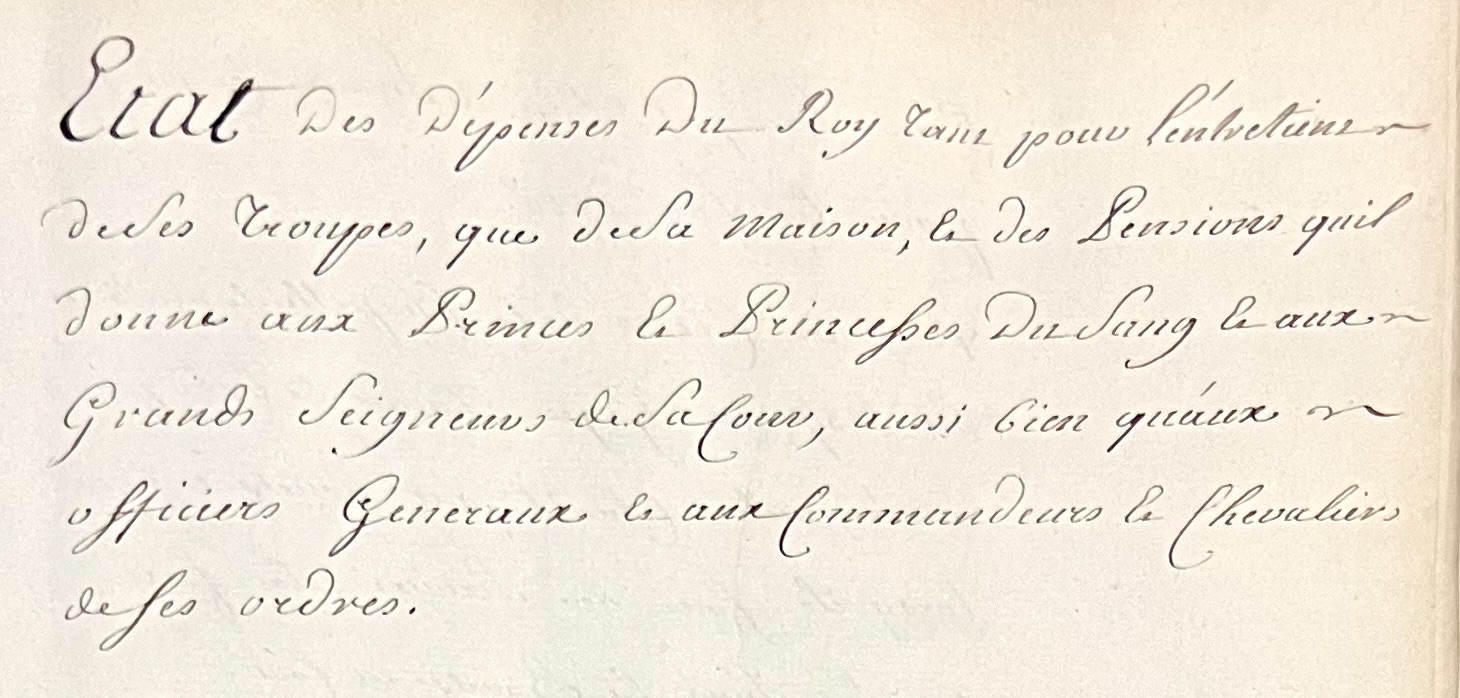 Etat Des Dépenses Du Roy tant pour l'éntretient
de Ses troupes, que de Sa maison, et des Pensions quil
donne aux Princes et Princesses Du Sang et aux
Grands Seigneurs de Sa Cour, aussi bien qu'aux
officiers Generaux et aux Commandeurs et Chevaliers
de ses ordres.